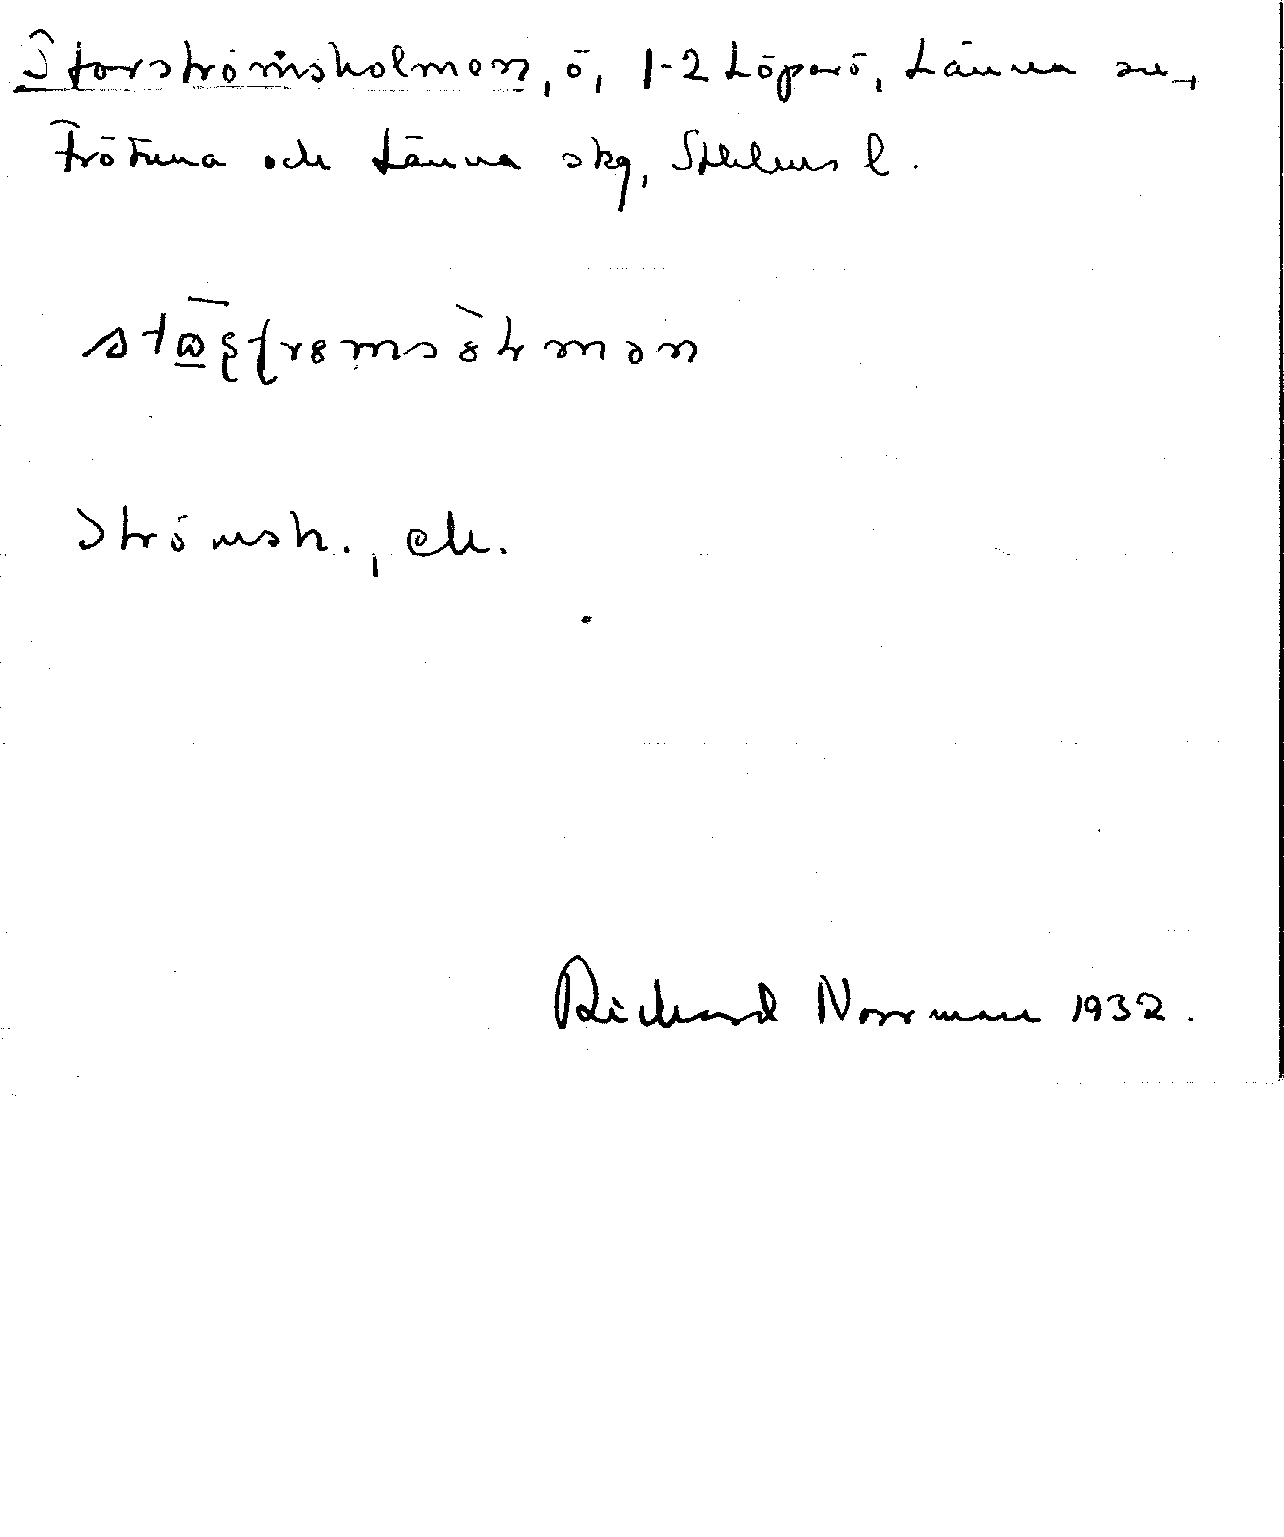 Storströmsholmen, ö, 1-2 Löparö, Länna sn,
Frötuna och Länna skg, Sthlms l.
Strömsh., ek.
Richard Norrman 1932.